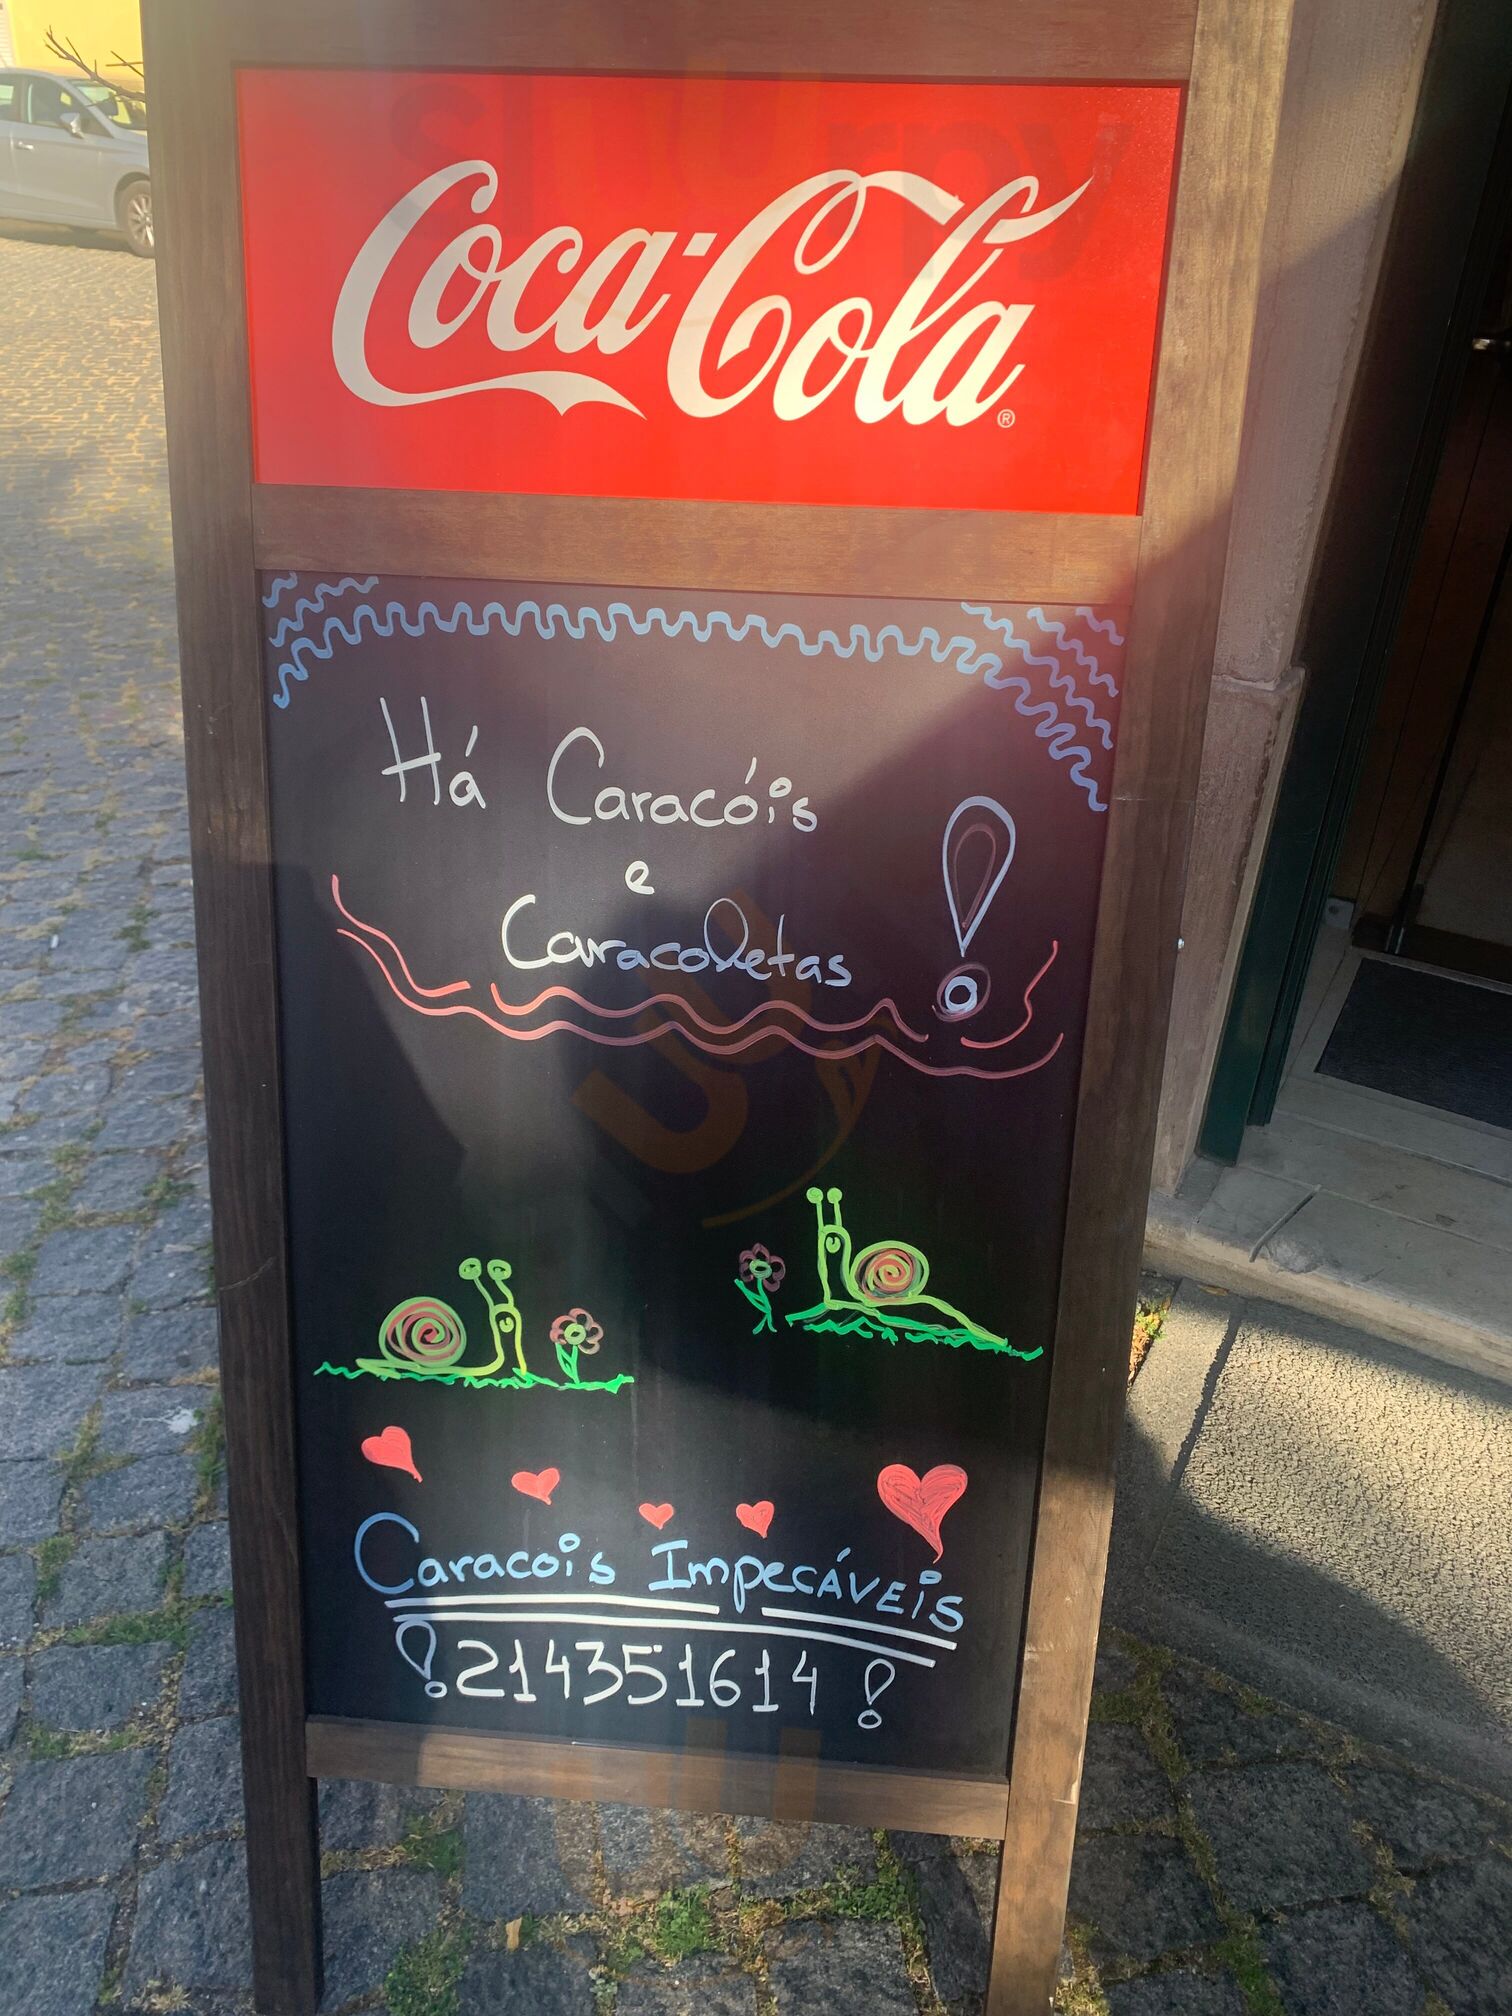 Coca-Cola
®
Há Caracóis
e
Caracoletas !
Caracois ImpecÁVEiS
! 214351614 !